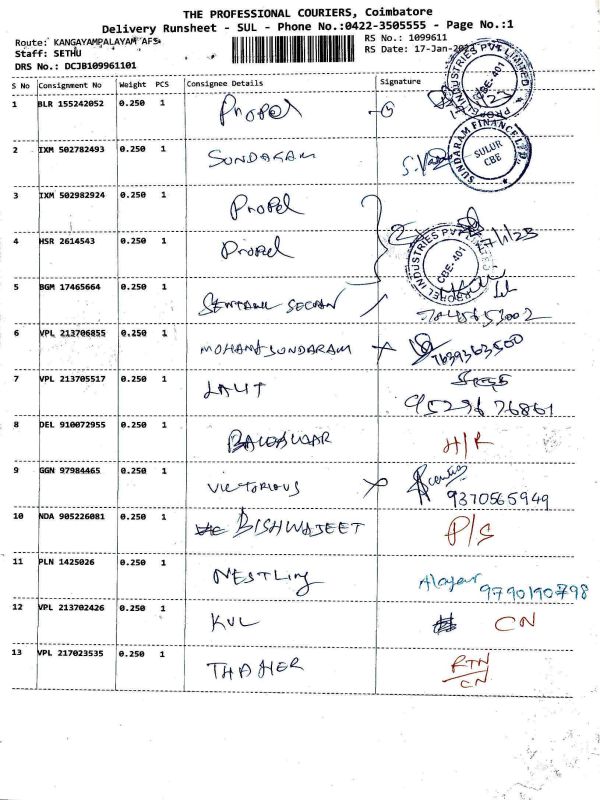 THE PROFESSIONAL COURIERS, Coimbatore
Delivery Runsheet - SUL - Phone No.:0422-3505555 - Page No.:1
Route: KANGAYAMPALAYAM AFS
RS No.: 1099611
Staff: SETHU
RS Date: 17-Jan-2023
DRS No.: DCJB109961101
S No Consignment No Weight PCS Consignee Details Signature
1 BLR 155242052 0.250 1 Propel
PROPEL INDUSTRIES PVT LIMITED CBE-401
2 IXM 502782493 0.250 1 SUNDARAM
SUNDARAM FINANCE LTD. SULUR CBE
3 IXM 502982924 0.250 1 Propel
17/1/23
4 HSR 2614543 0.250 1 Propel
PROPEL INDUSTRIES PVT CBE-401
5 BGM 17465664 0.250 1
6 VPL 213706855 0.250 1 MOHANASUNDARAM 7639363500
7 VPL 213705517 0.250 1 LALIT
8 DEL 910072955 0.250 1 H/R
9 GGN 97984465 0.250 1 VICTORIOUS
9370565949
10 NDA 905226081 0.250 1 BISHWAJEET P/S
11 PLN 1425026 0.250 1 NESTLING
9790190798
12 VPL 213702426 0.250 1 KVL CN
13 VPL 217023535 0.250 1 THAHER RTN
CN